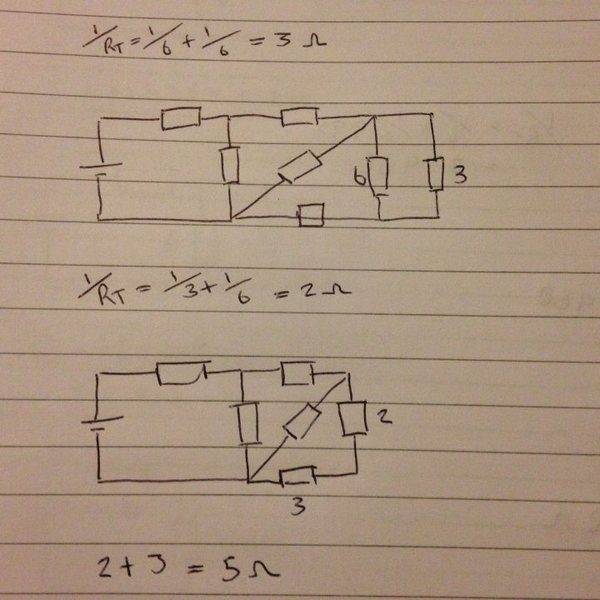 1/RT = 1/6 + 1/6 = 3 Ω
6 3
1/RT = 1/3 + 1/6 = 2 Ω
2
3
2 + 3 = 5 Ω